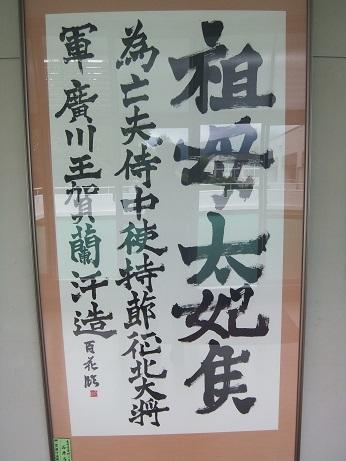 祖母太妃侯
為亡夫侍中使持節征北大將
軍廣川王賀蘭汗造
百花臨